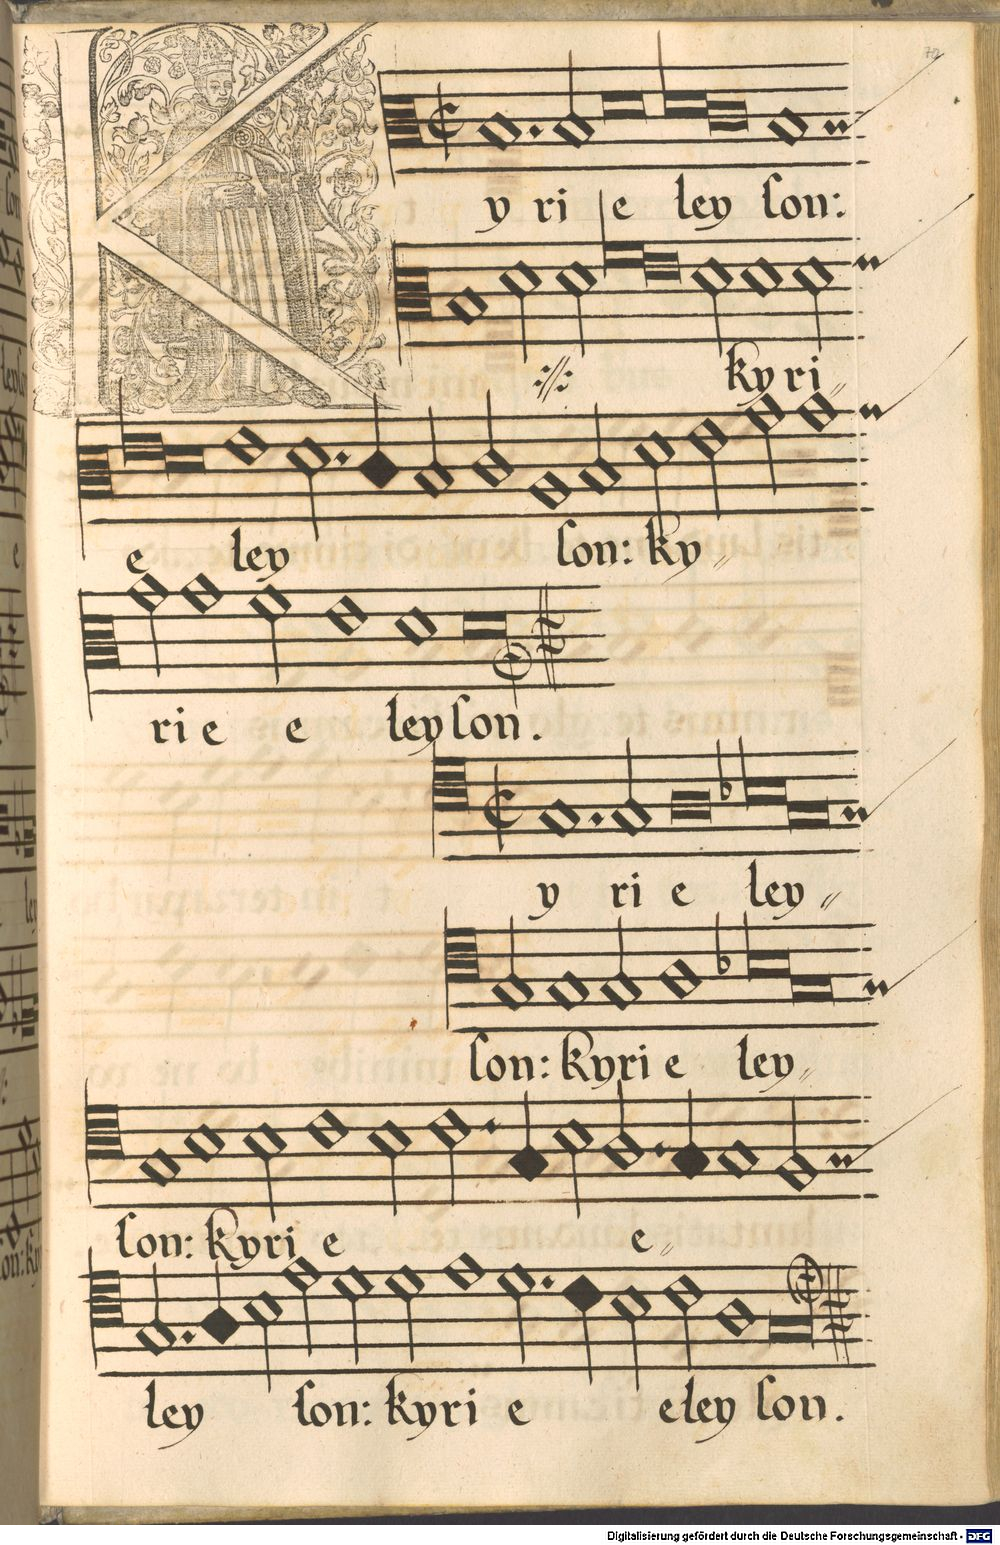 K
yri e ley son:
kyri
e ley son: ky
ri e e leyson.
y ri e ley
son: kyri e ley
son: kyri e e
ley son: kyri e eley son.
Digitalisierung gefördert durch die Deutsche Forschungsgemeinschaft - DFG